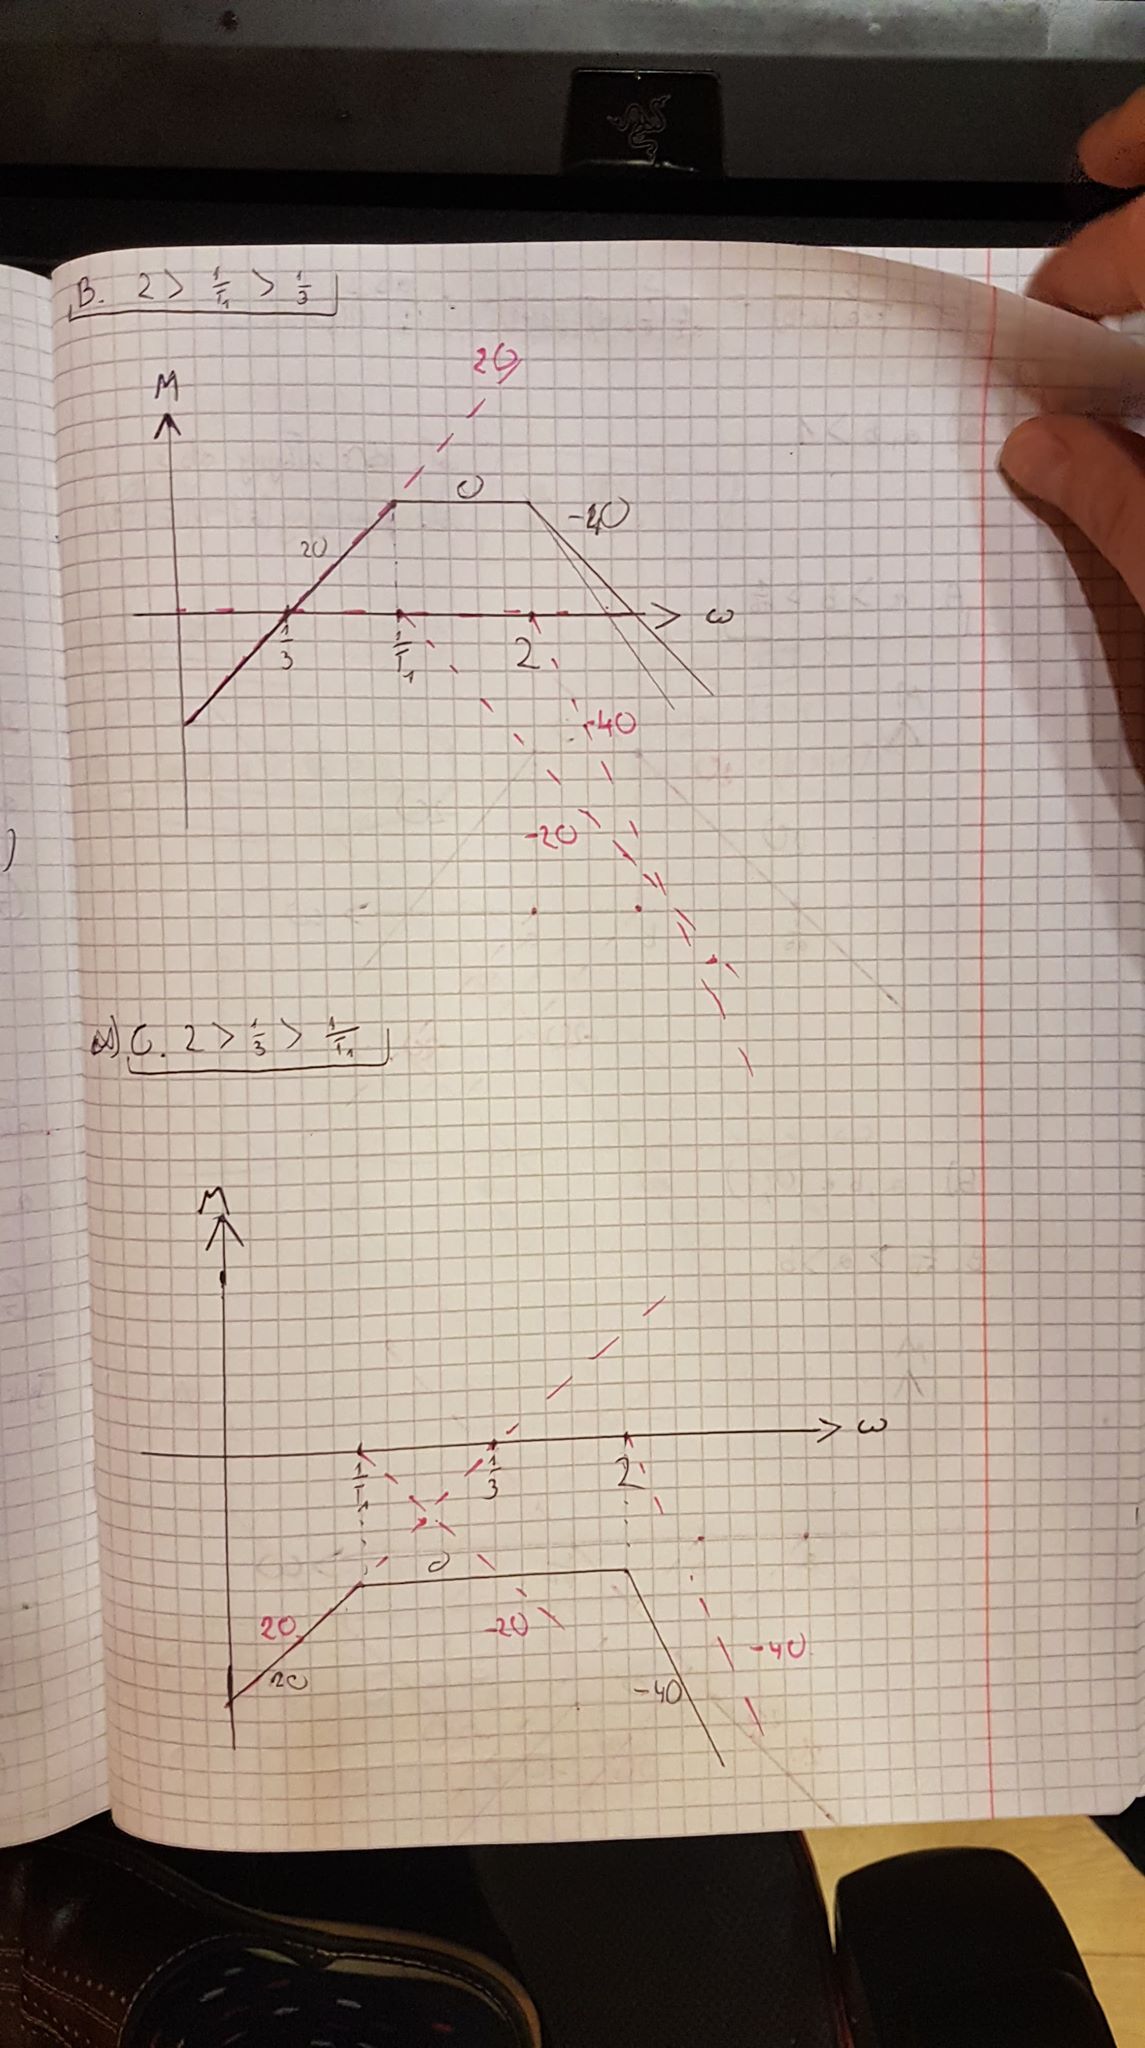 B. 2 > 1/T₁ > 1/3
M
20
0
-40
20
ω
1/3
1/T₁
2
-40
-20
C. 2 > 1/3 > 1/T₁
M
ω
1/T₁
1/3
2
0
20
-20
-40
20
-40